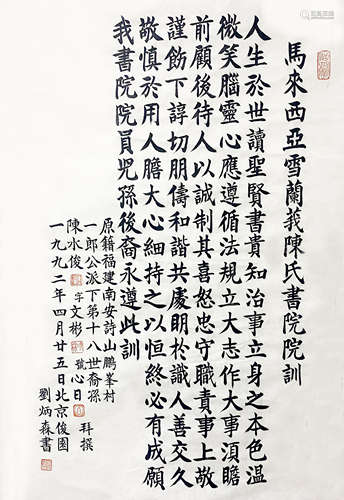 馬來西亞雪蘭莪陳氏書院院訓
人生於世讀聖賢書貴知治事立身之本色溫
微笑腦靈心應遵循法規立大志作大事須瞻
前顧後待人以誠制其喜怒忠守職責事上敬
謹飭下諄切朋儔和諧共處明於識人善交久
敬慎於用人膽大心細持之以恒終必有成願
我書院院員兒孫後裔永遵此訓
原籍福建南安詩山鵬峯村
一郎公派下第十八世裔孫
陳水俊字文彬號心日拜撰
一九九二年四月廿五日北京俊園
劉炳森書